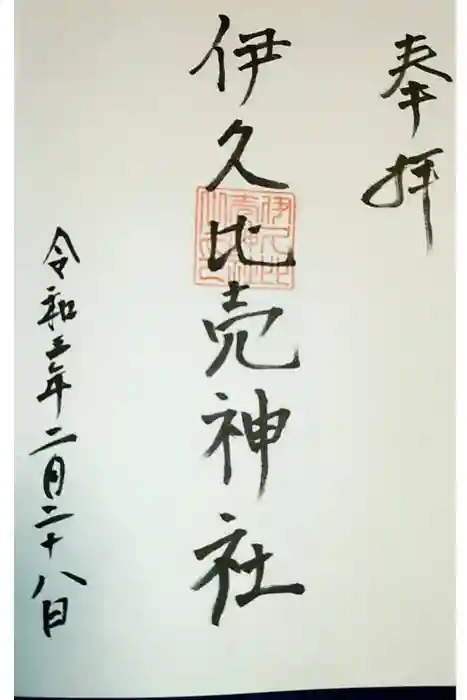 奉拝
伊久比売神社
令和三年二月二十八日